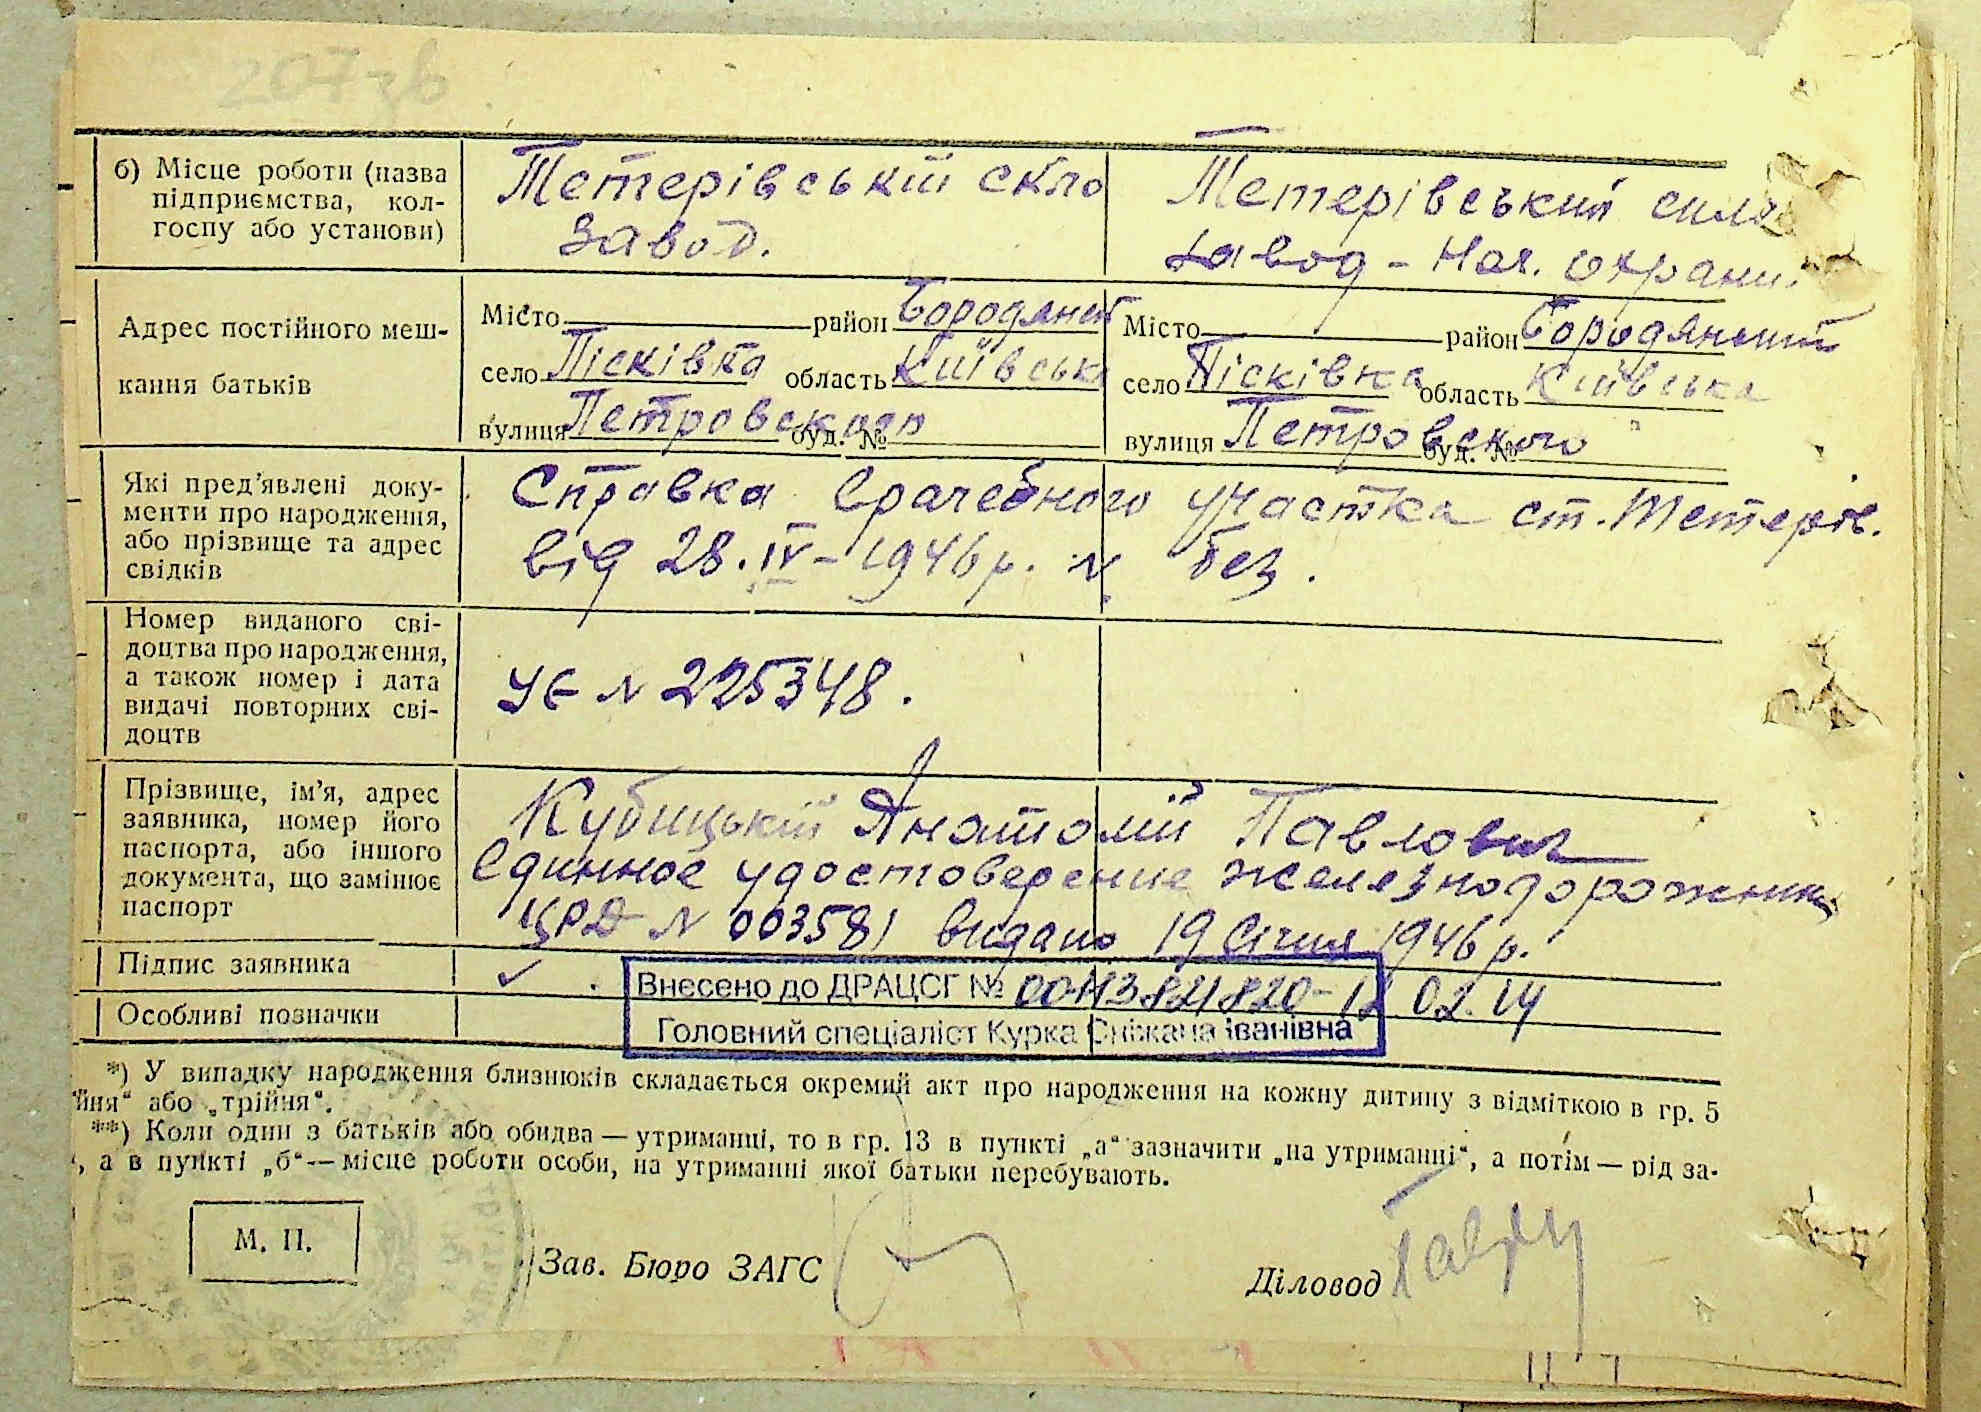 207 зв
б) Місце роботи (назва
підприємства, кол-
госпу або установи)
Тетерівській скло
завод.
Тетерівський скло
завод - Нач. охрани
Адрес постійного меш-
кання батьків
Місто район Бородянсь
село Пісківка область Київська
вулиця Петровского буд. №
Місто район Бородянський
село Пісківка область Київська
вулиця Петровского буд. №
Які пред'явлені доку-
менти про народження,
або прізвище та адрес
свідків
Справка врачебного участка ст. Тетерів.
від 28.IV-1946 р. № без.
Номер виданого сві-
доцтва про народження,
а також номер і дата
видачі повторних сві-
доцтв
УЄ № 225348.
Прізвище, ім'я, адрес
заявника, номер його
паспорта, або іншого
документа, що замінює
паспорт
Кубицькій Анатолій Павлович
Единное удостоверение железнодорожника
ЦРД № 003581 видано 19 Січня 1946 р.
Підпис заявника
Внесено до ДРАЦСГ № 02.14
Особливі позначки
Головний спеціаліст Курка Сніжана Іванівна
*) У випадку народження близнюків складається окремий акт про народження на кожну дитину з відміткою в гр. 5
йня" або „трійня".
**) Коли один з батьків або обидва — утриманці, то в гр. 13 в пункті „а" зазначити „на утриманні", а потім — рід за-
, а в пункті „б" — місце роботи особи, на утриманні якої батьки перебувають.
М. П.
Зав. Бюро ЗАГС
Діловод